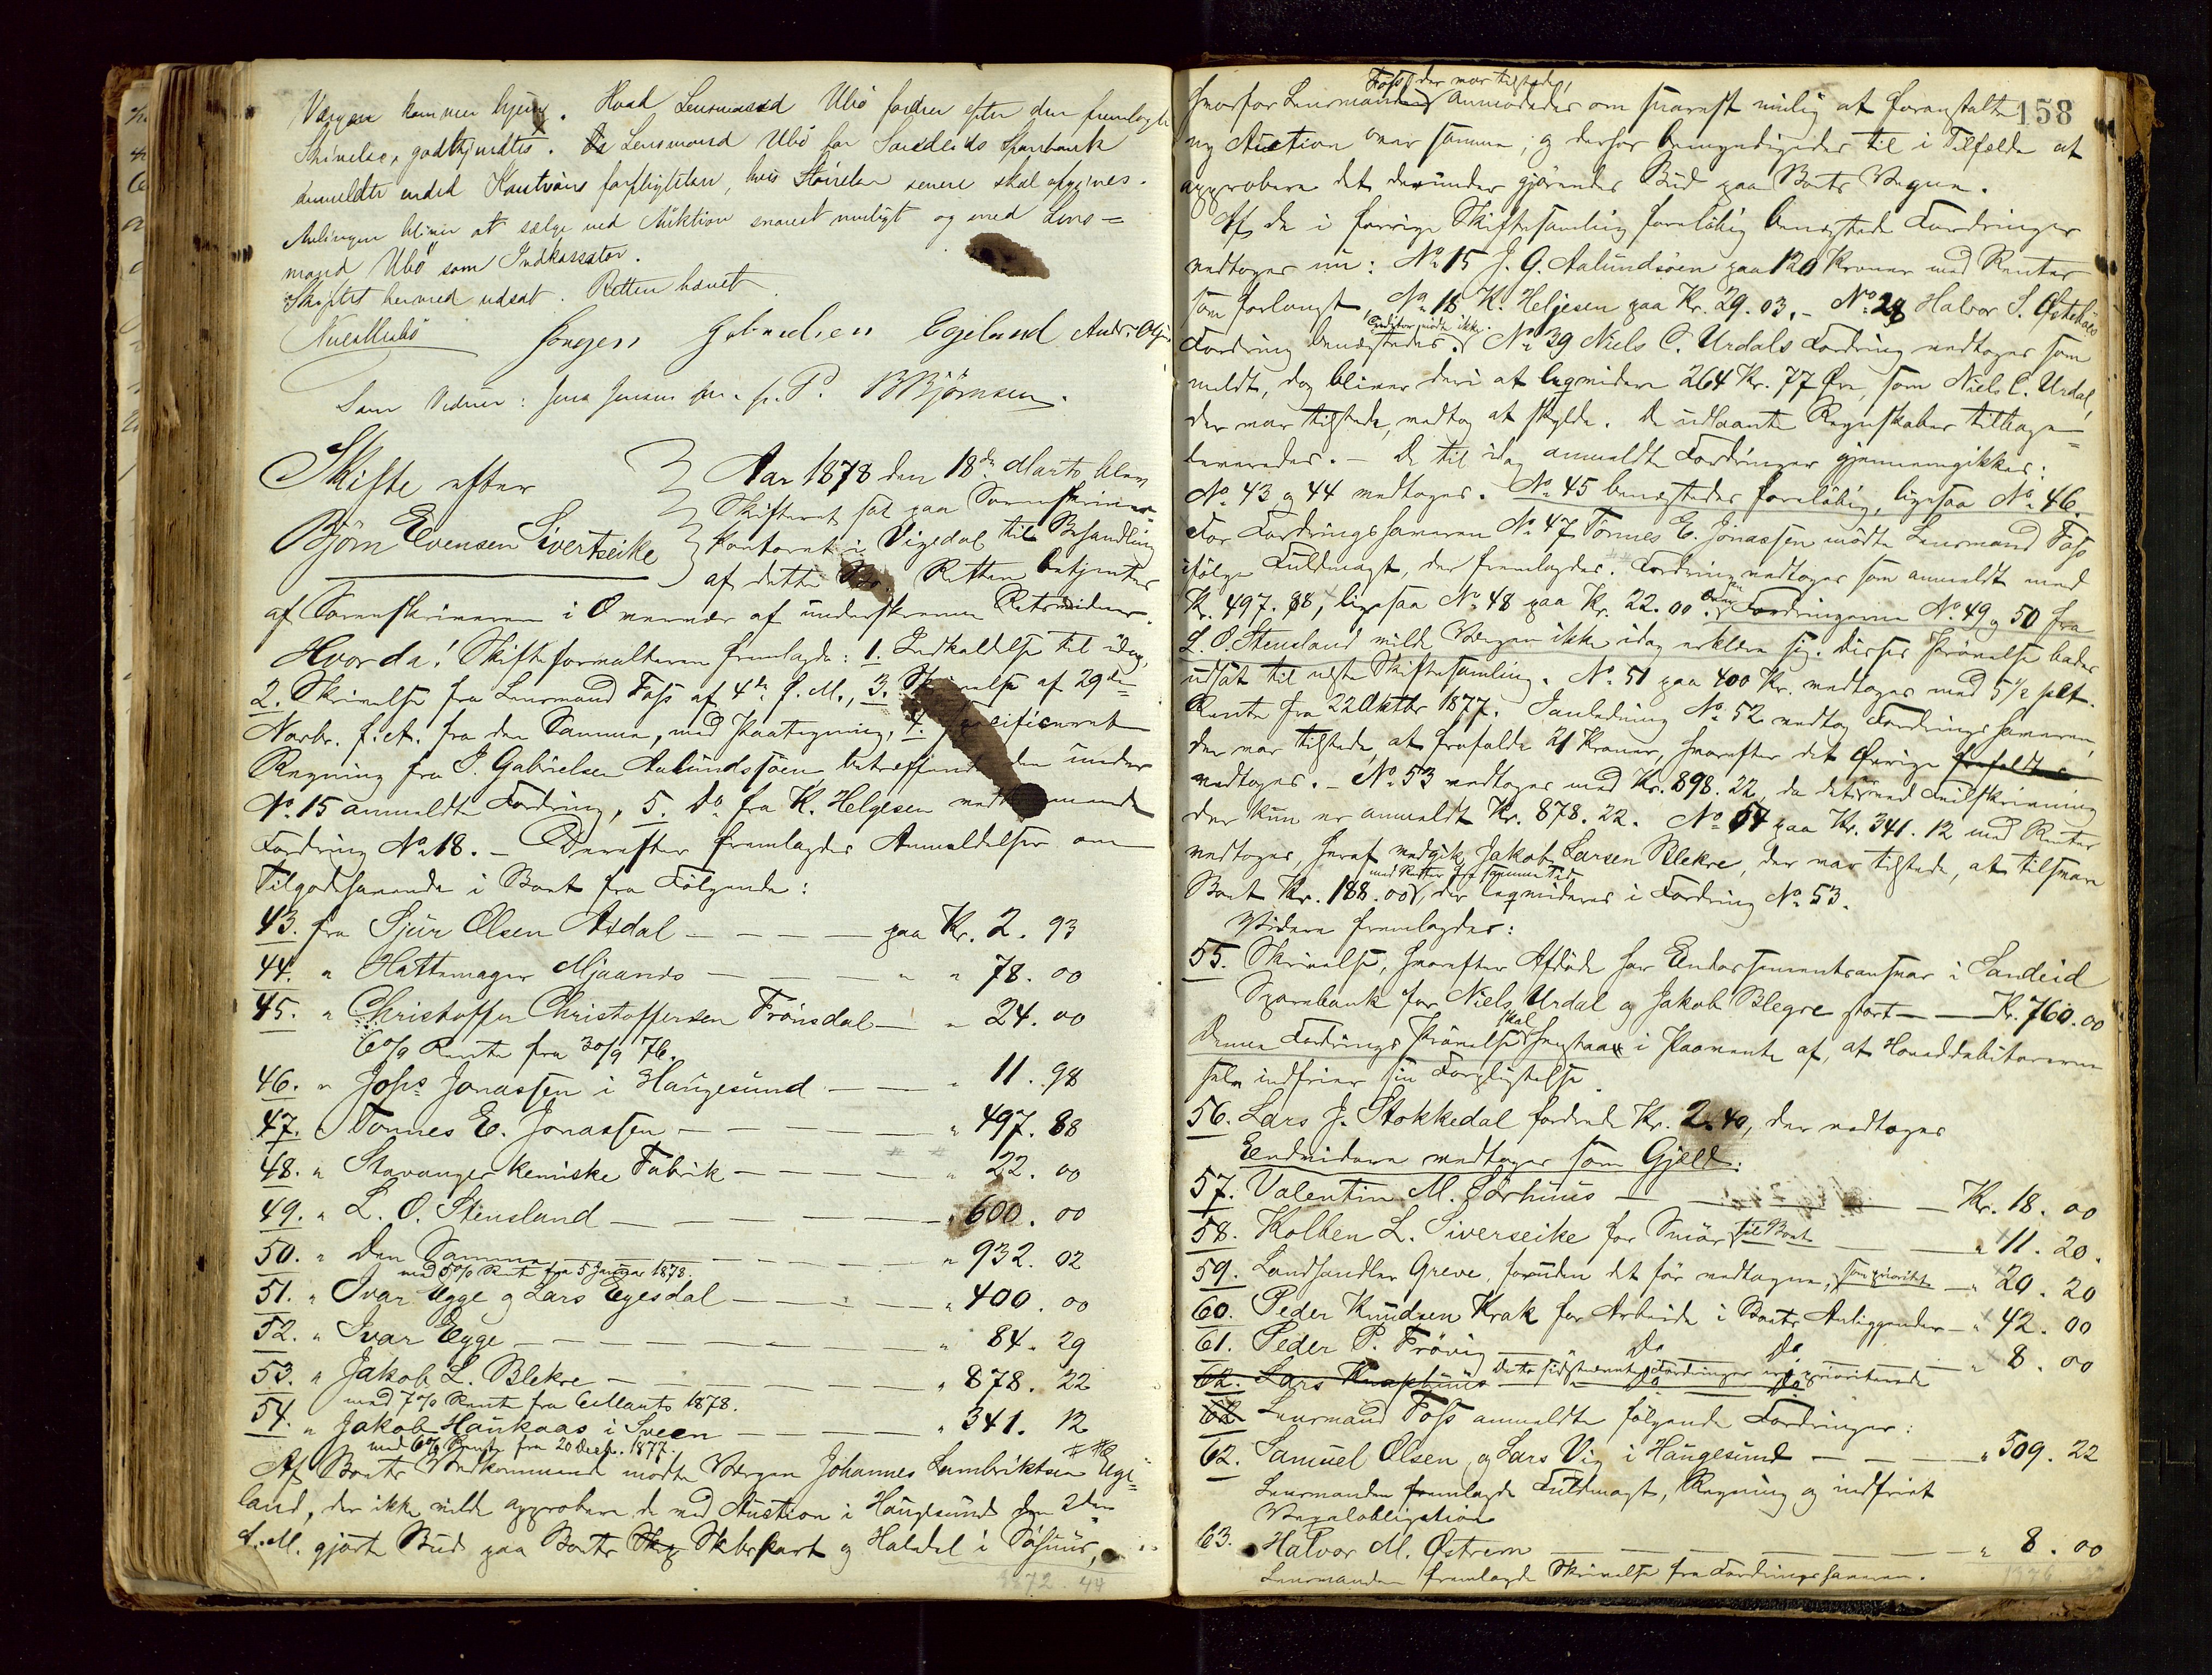 Værgen kommer hjem. Hvad Lensmand Ubø fordrer efter den fremlagte
Skrivelse, godkjendtes. Da Lensmand Ubø for Sandeids Sparebank
anmeldte endel forpligtelser, hvis Størrelse senere skal opgives.
bliver at sælge ved Auktion snarest muligt og med Lens=
mand Ubø som Indkassator.
Skiftet hermed udsat. Retten hævet
Jørgen Gabrielsen Egeland Andr. Olsen
Som Vidner: Jens Jensen P. B Bjørnsen.
Skifte efter
Bjørn Evensen Sivertseike
Aar 1878 den 18de Marts blev
Skifteret sat paa Sorenskriver-
kontoret i Vigedal til Behandling
af dette Bo. Retten betjentes
af Sorenskriveren i Overvær af underskrevne Retsvidner.
Hvorda! Skifteforvalteren fremlagde: 1. Indkaldelse til idag,
2. Skrivelse fra Lensmand Foss af 4de f. M., 3. Skrivelse af 29de
Novbr. f. A. fra den Samme, med Paategning, 4. Specificeret
Regning fra J. Gabrielsen Aalundssøen betreffende den under
No 15 anmeldte Fordring, 5. Do fra K. Helgesen vedkommende
Fordring No 18. – Derefter fremlagdes Anmeldelser om
Tilgodehavende i Boet fra Følgende:
43. fra Sjur Olsen Asdal – – – – paa Kr. 2. 93
44. " Hattemager Mjaanes – – – " " 78. 00
45. " Christoffer Christoffersen Frönsdal – " 24. 00
6 o/o Rente fra 30/9 76.
46. " Johs Jonassen i Haugesund – – " 11. 98
47. " Tonnes E. Jonassen – – – – " 497. 88
48. " Stavanger kemiske Fabrik – – – " 22. 00
49. " L. O. Stensland – – – – – " 600. 00
50. " Den Samme – – – – – " 932. 02
med 5 o/o Rente fra 5 Januar 1878.
51. " Ivar Egge og Lars Egesdal – – – – " 400. 00
52. " Ivar Egge – – – – – " 84. 29
53. " Jakob L. Blekre – – – – – " 878. 22
med 7 o/o Rente fra Marts 1878.
54. " Jakob Haukaas i Sveen – – – – " 341. 12
med 6 o/o Rente fra 20 Decb. 1877.
Af Boets Vedkommende mødte Værgen Johannes Lambriktsen Uge-
land, der ikke vilde approbere de ved Auction i Haugesund den 2den
d. M. gjorte Bud paa Boets Skibspart og Halvdel i Søhuus,
1872. 44
158
Foss, der var tilstede,
hvorfor Lensmanden anmodedes om snarest mulig at foranstalte
ny Auction over samme, og derfor bemyndigedes til i Tilfælde at
approbere det derunder gjørendes Bud paa Boets Vegne.
Af de i forrige Skiftesamling foreløbig benægtede Fordringer
vedtoges nu: No 15 J. G. Aalundsøen paa 120 Kroner med Renter
som forlangt, No 18 K. Helgesen paa Kr. 29. 03. – No 24 Halvor S. Østebøes
Creditor mødte ikke.
Fordring benægtedes. No 39 Niels C. Urdals Fordring vedtoges som
meldt, dog bliver deri at liqvidere 264 Kr. 77 Øre, som Niels C. Urdal,
der var tilstede, vedtog at skylde. De udlaante Regnskaber tilbage=
leveredes. – De til idag anmeldte Fordringer gjennemgikkes:
No 43 og 44 vedtoges. No 45 benægtedes foreløbig, ligesaa No 46.
For Fordringshaveren No 47 Tönnes E. Jonassen mødte Lensmand Foss
ifølge Fuldmagt, der fremlagdes. Fordring vedtoges som anmeldt med
Kr. 497. 88, ligesaa No 48 paa Kr. 22. 00. Om Fordringerne No 49 og 50 fra
L. O. Stensland vilde Værgen ikke idag erklære sig. Disses Prøvelse bades
udsat til neste Skiftesamling. No 51 paa 400 Kr. vedtoges med 5½ pCt.
Rente fra 22 Oktbr 1877. I Anledning No 52 vedtog Fordringshaveren,
der var tilstede, at frafalde 21 Kroner, hvorefter det Øvrige frafaldtes
vedtoges. – No 53 vedtoges med Kr. 898. 22, da det er ved Feilskrivning
der kun er anmeldt Kr. 878. 22. No 54 paa Kr. 341. 12 med Renter
vedtoges, heraf vedgik Jakob Larsen Blekre, der var tilstede, at tilsvare
med Renter fra samme Tid
Boet Kr. 188. 00, der liqvideres i Fordring No 53.
Videre fremlagdes:
55. Skrivelse, hvorefter Afdøde har Endossementsansvar i Sandeid
Sparebank for Niels Urdal og Jakob Blegre stort – – Kr. 760. 00
Denne Fordrings Prøvelse skal henstaa i Paavente af, at Hoveddebitorerne
selv indfrier sin Forpligtelse.
56. Lars J. Stokkedal fordrede Kr. 2. 40, der vedtoges
Endvidere vedtoges som Gjæld:
57. Valentin M. Sörhuus – – – Kr. 18. 00
58. Kolben L. Siverseike for Smør til Boet – – " 11. 20.
59. Landhandler Greve, foruden det før vedtagne, som prioritet – " 20. 20
60. Peder Knudsen Krak for Arbeide i Boets Anliggender – " 42. 00
61. Peder P. Frövig – " Do Do – " 8. 00
62. Lars Knaphuus – " Do Do
De to sidstnævnte Fordringer ere prioriterede
62 Lensmand Foss anmeldte følgende Fordringer:
62. Samuel Olsen og Lars Vig i Haugesund – – – " 509. 22
Lensmanden fremlagde Fuldmagt, Regning og indfriet
Vexelobligation
63. Halvor M. Østrem – – – – – " 8. 00
Lensmanden fremlagde Skrivelse fra Fordringshaveren.